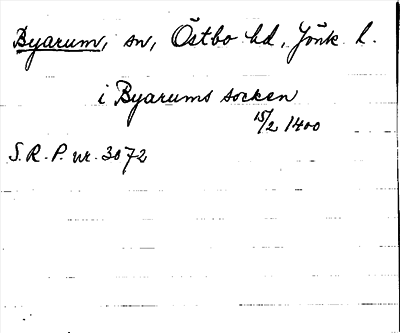 Byarum, sn, Östbo hd, Jönk. l.
i Byarums socken
15/2 1400
S. R. P. nr. 3072